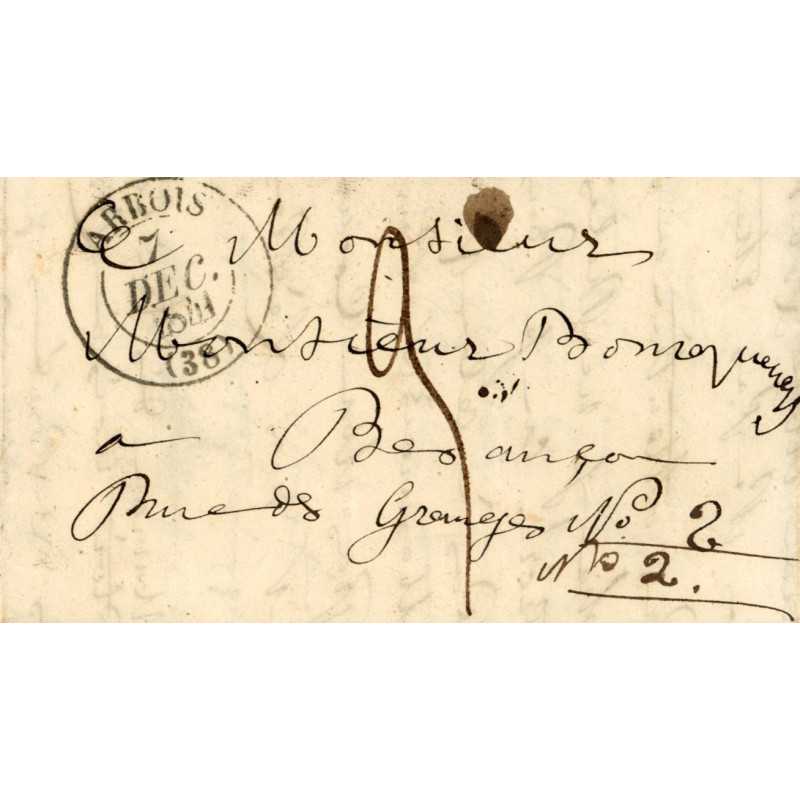 ARBOIS
7
DEC.
1841
(38)
A Monsieur
Monsieur Bourqueney
a Besançon
Rue des Granges No. 2
No 2.